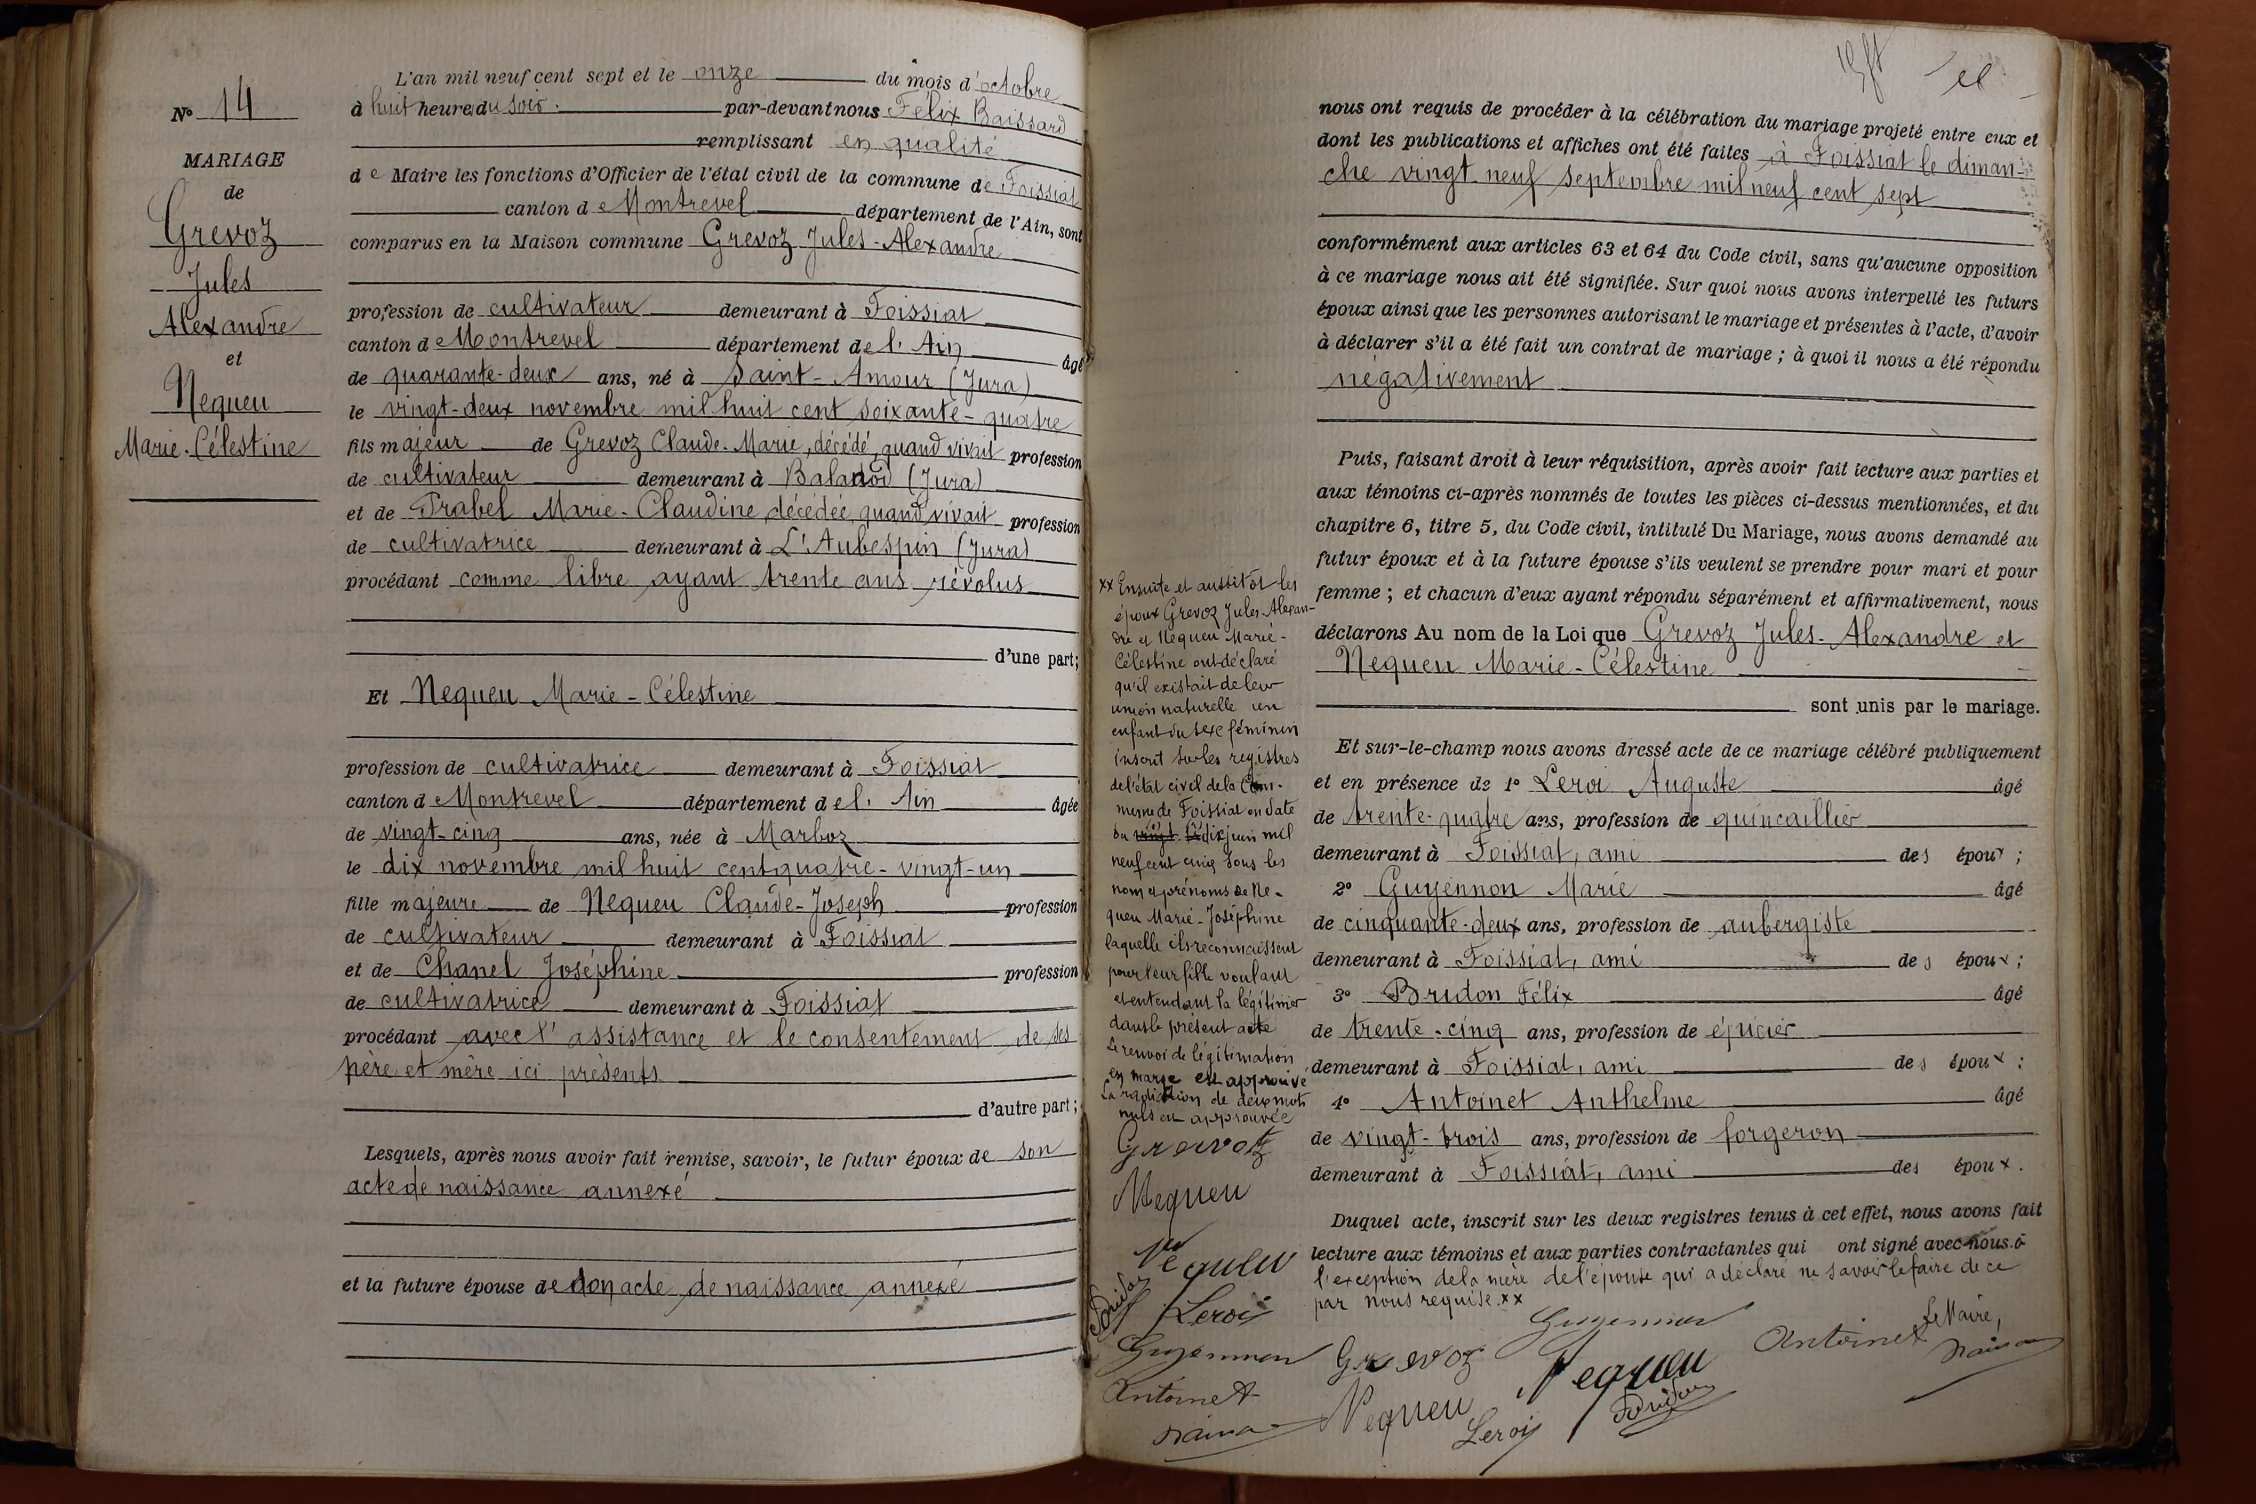 L'an mil neuf cent sept et le onze du mois d'octobre
à huit heures du soir. par-devant nous Félix Baissard
remplissant en qualité
de Maire les fonctions d'Officier de l'état civil de la commune de Foissiat
canton de Montrevel département de l'Ain, sont
comparus en la Maison commune Grevoz Jules-Alexandre
profession de cultivateur demeurant à Foissiat
canton de Montrevel département de l'Ain âgé
de quarante-deux ans, né à Saint-Amour (Jura)
le vingt-deux novembre mil huit cent soixante-quatre
fils majeur de Grevoz Claude-Marie, décédé, quand vivait profession
de cultivateur demeurant à Balanod (Jura)
et de Trabel Marie-Claudine décédée, quand vivait profession
de cultivatrice demeurant à L'Aubespin (Jura)
procédant comme libre ayant trente ans révolus
d'une part;
Et Nequeu Marie-Célestine
profession de cultivatrice demeurant à Foissiat
canton de Montrevel département de l'Ain âgée
de vingt-cinq ans, née à Marboz
le dix novembre mil huit cent quatre-vingt-un
fille majeure de Nequeu Claude-Joseph profession
de cultivateur demeurant à Foissiat
et de Chanel Joséphine profession
de cultivatrice demeurant à Foissiat
procédant avec l'assistance et le consentement de ses
père et mère ici présents
d'autre part;
Lesquels, après nous avoir fait remise, savoir, le futur époux de son
acte de naissance annexé
et la future épouse de son acte de naissance annexé
No 14
MARIAGE
de
Grevoz
Jules
Alexandre
et
Nequeu
Marie-Célestine
nous ont requis de procéder à la célébration du mariage projeté entre eux et
dont les publications et affiches ont été faites à Foissiat le diman-
che vingt neuf septembre mil neuf cent sept
conformément aux articles 63 et 64 du Code civil, sans qu'aucune opposition
à ce mariage nous ait été signifiée. Sur quoi nous avons interpellé les futurs
époux ainsi que les personnes autorisant le mariage et présentes à l'acte, d'avoir
à déclarer s'il a été fait un contrat de mariage; à quoi il nous a été répondu
négativement
Puis, faisant droit à leur réquisition, après avoir fait lecture aux parties et
aux témoins ci-après nommés de toutes les pièces ci-dessus mentionnées, et du
chapitre 6, titre 5, du Code civil, intitulé Du Mariage, nous avons demandé au
futur époux et à la future épouse s'ils veulent se prendre pour mari et pour
femme; et chacun d'eux ayant répondu séparément et affirmativement, nous
déclarons Au nom de la Loi que Grevoz Jules-Alexandre et
Nequeu Marie-Célestine
sont unis par le mariage.
Et sur-le-champ nous avons dressé acte de ce mariage célébré publiquement
et en présence de 1o Leroi Auguste âgé
de trente-quatre ans, profession de quincaillier
demeurant à Foissiat, ami des époux;
2o Guyennon Marie âgé
de cinquante-deux ans, profession de aubergiste
demeurant à Foissiat, ami des époux;
3o Bridon Félix âgé
de trente-cinq ans, profession de épicier
demeurant à Foissiat, ami des époux:
4o Antoinet Anthelme âgé
de vingt-trois ans, profession de forgeron
demeurant à Foissiat, ami des époux.
Duquel acte, inscrit sur les deux registres tenus à cet effet, nous avons fait
lecture aux témoins et aux parties contractantes qui ont signé avec nous à
l'exception de la mère de l'épouse qui a déclaré ne savoir le faire de ce
par nous requise. xx
xx Ensuite et aussitôt les
époux Grevoz Jules-Alexan-
dre et Nequeu Marie-
Célestine ont déclaré
qu'il existait de leur
union naturelle un
enfant du sexe féminin
inscrit sur les registres
de l'état civil de la Com-
mune de Foissiat en date
du vingt dix juin mil
neuf cent cinq sous les
nom et prénoms de Ne-
queu Marie-Joséphine
laquelle ils reconnaissent
pour leur fille voulant
et entendant la légitimer
dans le présent acte
Le renvoi de légitimation
en marge est approuvé
La radiation de deux mots
nuls est approuvée
Grevoz
Nequeu
Nequeu
Bridon Leroi
Guyennon
Antoinet
Grevoz Guyennon Antoinet Le Maire,
Nequeu Nequeu
Leroi Bridon